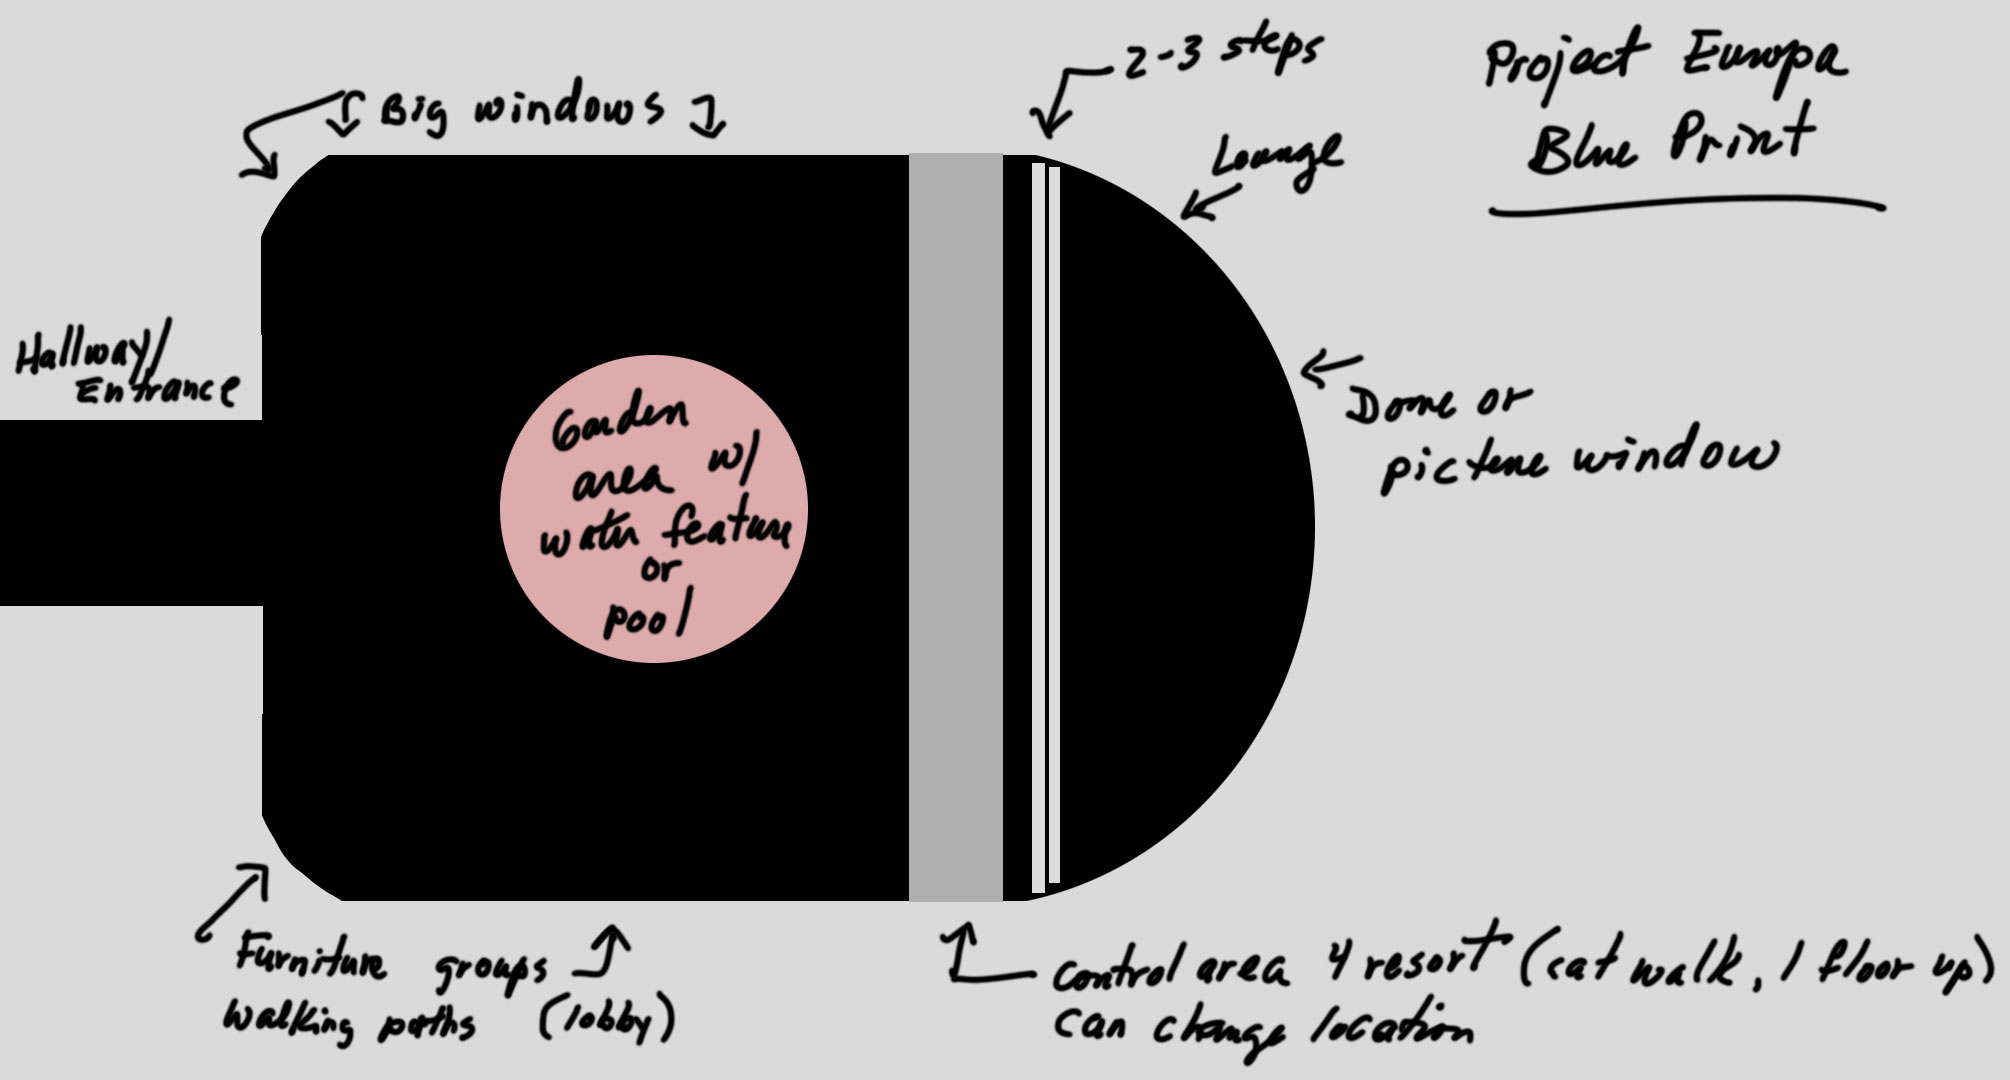 Project Europa
Blue Print
2-3 steps
Big windows
Lounge
Hallway/
Entrance
Dome or
picture window
Garden
area w/
water feature
or
pool
Furniture groups
walking paths (lobby)
control area 4 resort (cat walk, 1 floor up)
can change location